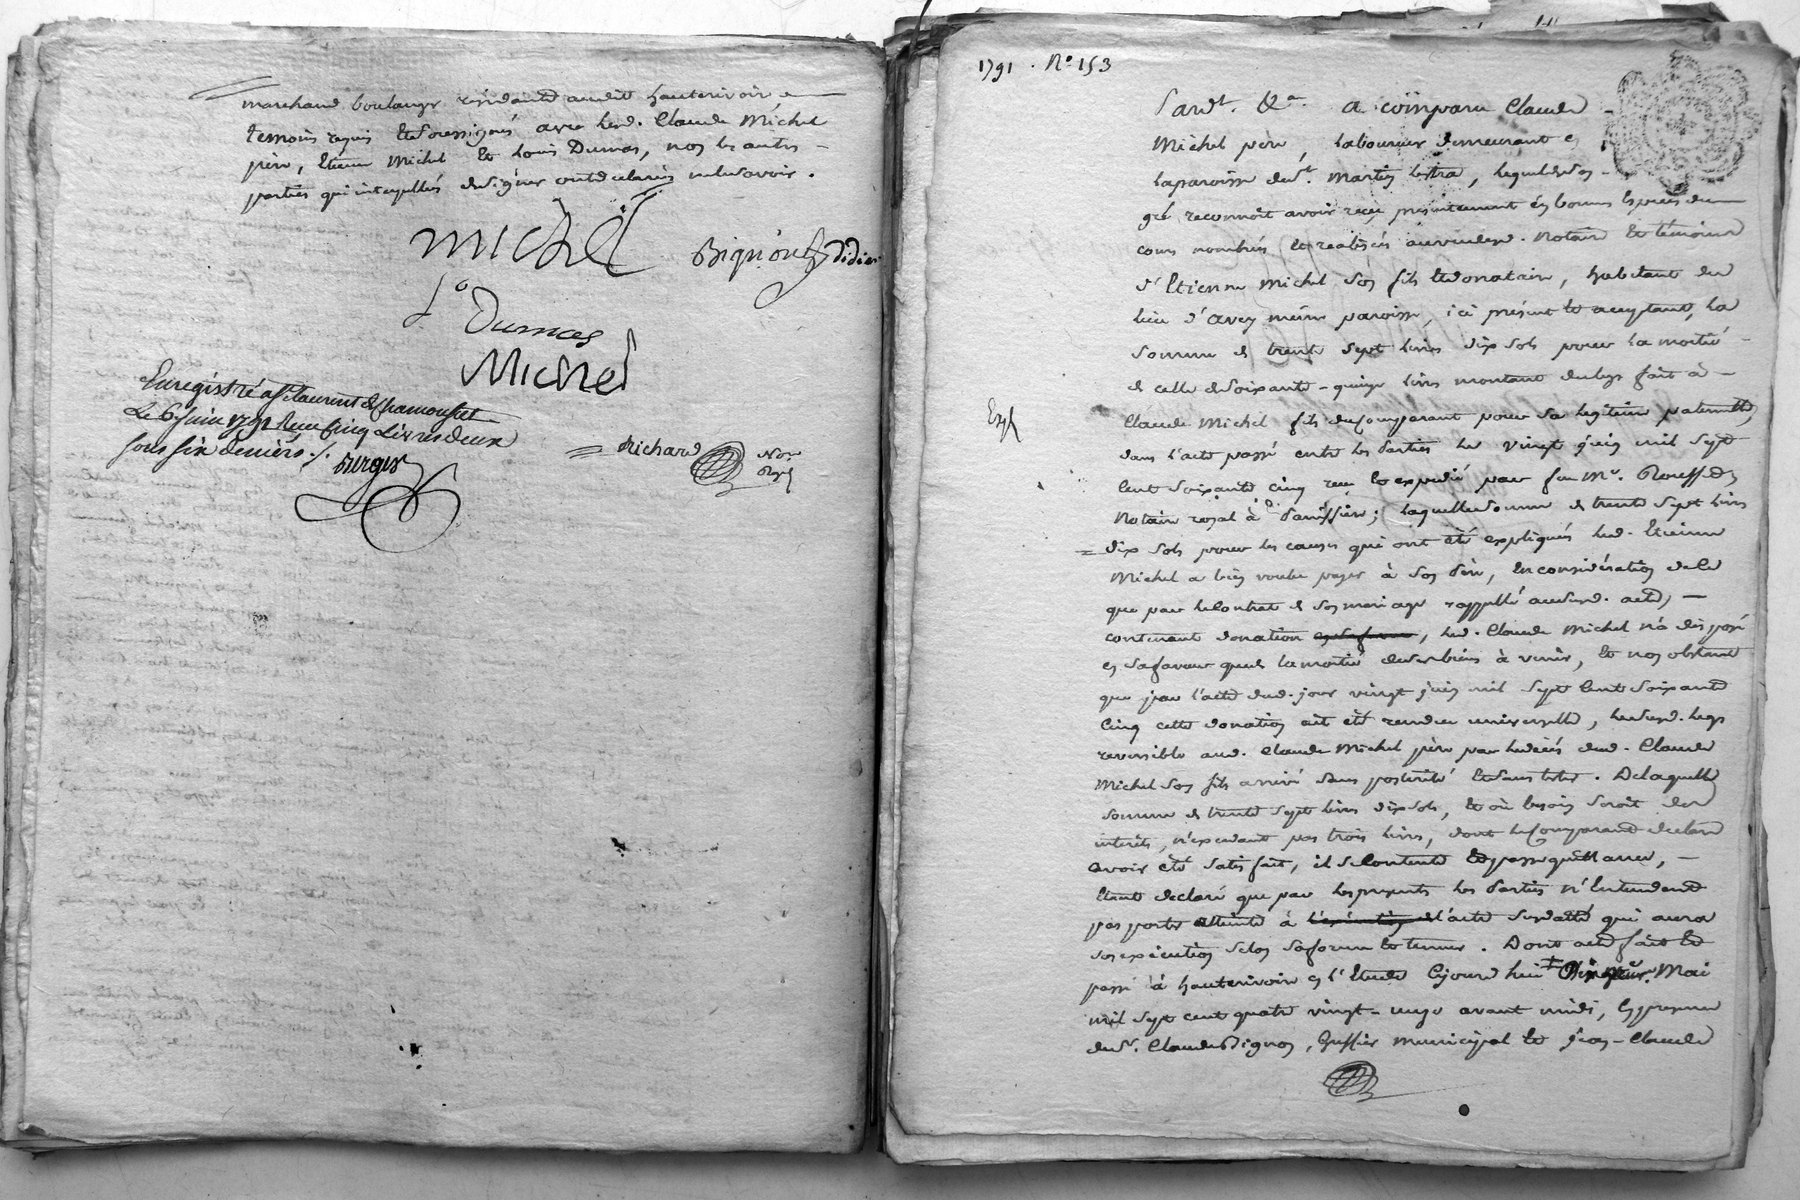 marchand boulanger résidants audit hauterivoire
temoins requis et soussignés avec led. Claude Michel
père, Etienne Michel et Louis Dumas, non les autres
parties qui interpellés de signer ont déclaré ne le savoir.
Michel
Bignon Didier
Ls Dumas
Michel
Enregistré a St Laurent de Chamousset
Le 6 Juin 1791 Reçu Cinq Livres deux
sous six deniers ./.
Richard Nore
Royl
1791. No. 153
Pardt. &a. a comparu Claude
Michel père, laboureur demeurant en
la paroisse de St. Martin lestra, lequel de son
gré reconnoit avoir reçu présentement en bonnes espèces du
cours nombrés et réalisés au vu desd. Notaire et témoins
d'Etienne Michel son fils et donataire, habitant du
lieu d'avey même paroisse, ici présent et acceptant, la
somme de trente sept livres dix sols pour la moitié
de celle de soixante-quinze livres montant du legs fait à
Claude Michel fils du comparant pour sa legitime paternelle
Expé
dans l'acte passé entre les parties le vingt juin mil sept
cent soixante cinq reçu et expedié par feu Me. Rousset
Notaire royal à Panissière; laquelle somme de trente sept livres
dix sols pour les causes qui ont été expliqués led. Etienne
Michel a bien voulu payer à son père, en considération de ce
que par le contrat de son mariage rappellé au susd. acte,
contenant donation, led. Claude Michel n'a disposé
en sa faveur que de la moitié de ses biens à venir, et non obstant
que par l'acte dud. jour vingt juin mil sept cent soixante
cinq cette donation ait été rendue universelle, le susd. legs
reversible aud. Claude Michel père par le décés dud. Claude
Michel son fils arrivé sans posterité et sans tester. De laquelle
somme de trente sept livres dix sols, et où besoin seroit des
intérêts, n'excedant pas trois livres, dont le comparant déclare
avoir été satisfait, il se contente et passe quittance,
étant déclaré que par les presentes les parties n'entendent
pas porter atteinte à l'acte susdatté qui aura
son exécution selon sa forme et teneur. Dont acte fait et
passé à hauterivoire en l'Etude Cejourd'hui Mai
mil sept cent quatre vingt-onze avant midi, en presence
de Sr. Claude Bignon, Greffier municipal et Jean-Claude